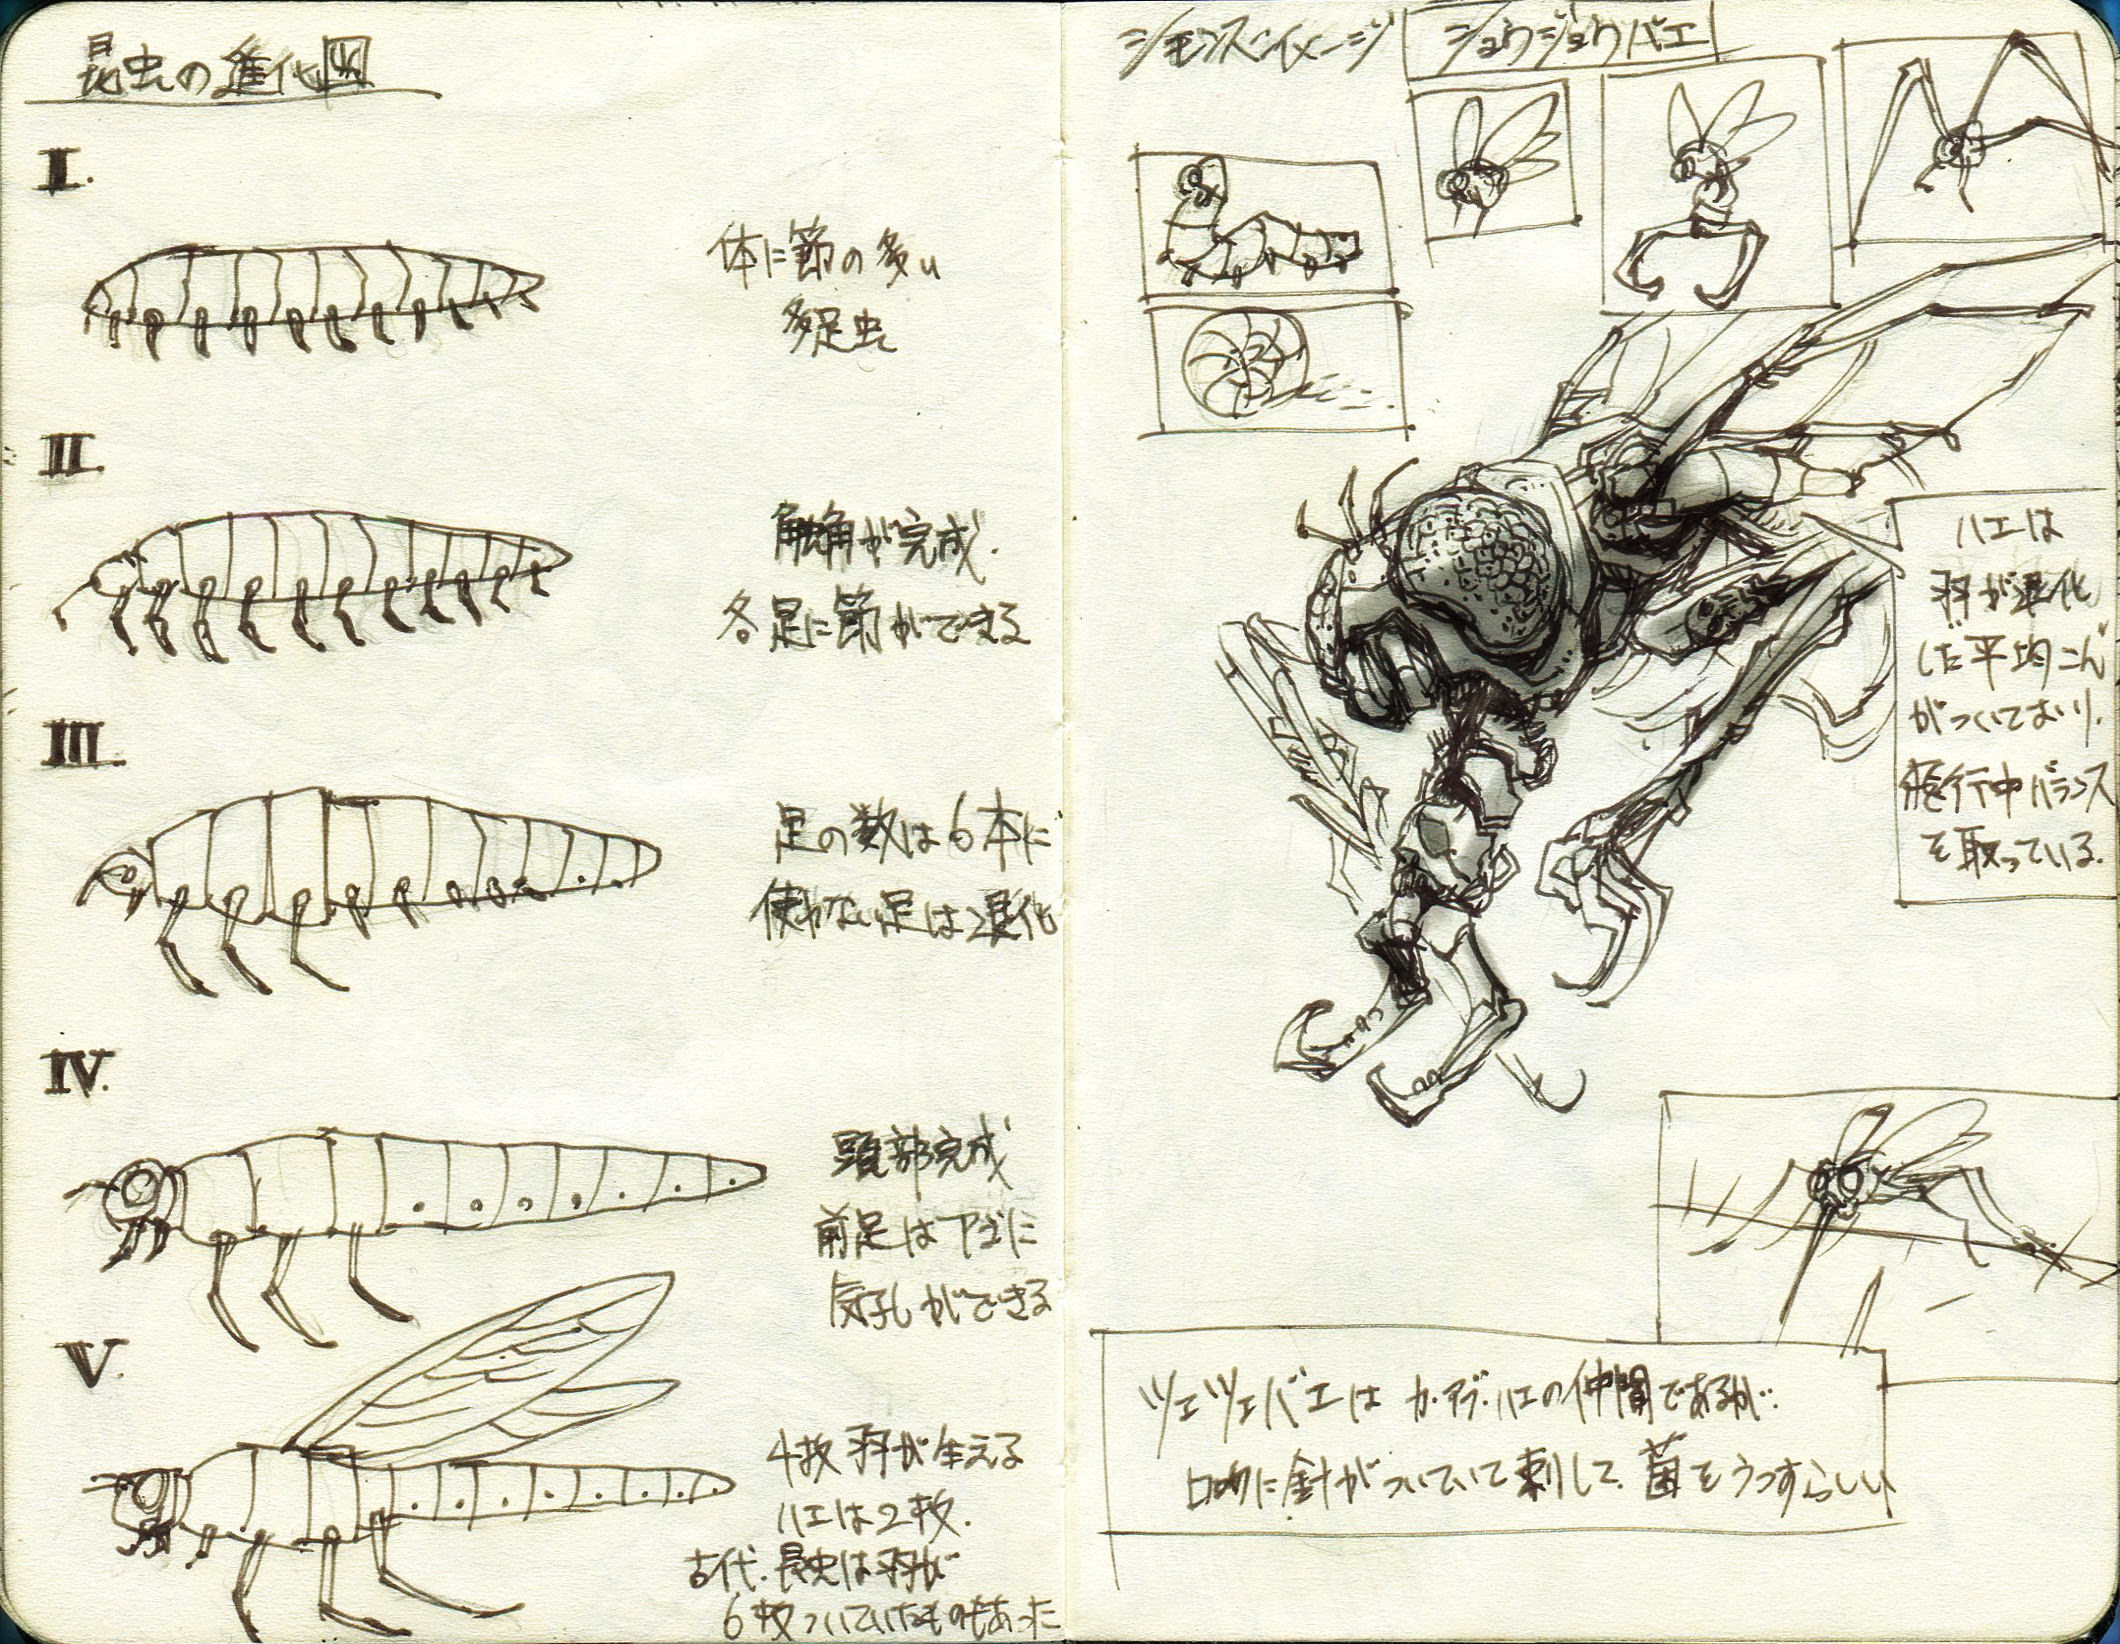 昆虫の進化図
I.
体に節の多い
多足虫
II.
触角が完成.
各足に節ができる
III.
足の数は6本に
使わない足は退化
IV.
頭部完成
前足はアゴに
気孔ができる
V.
4枚羽が生える
ハエは2枚.
古代.昆虫は羽が
6枚ついていたものもあった
シモンズ・イメージ
ショウジョウバエ
ハエは
羽が退化
した平均こん
がついており.
飛行中バランス
を取っている.
ツェツェバエは カ・アブ・ハエの仲間であるが..
口内に針がついていて刺して.菌をうつすらしい